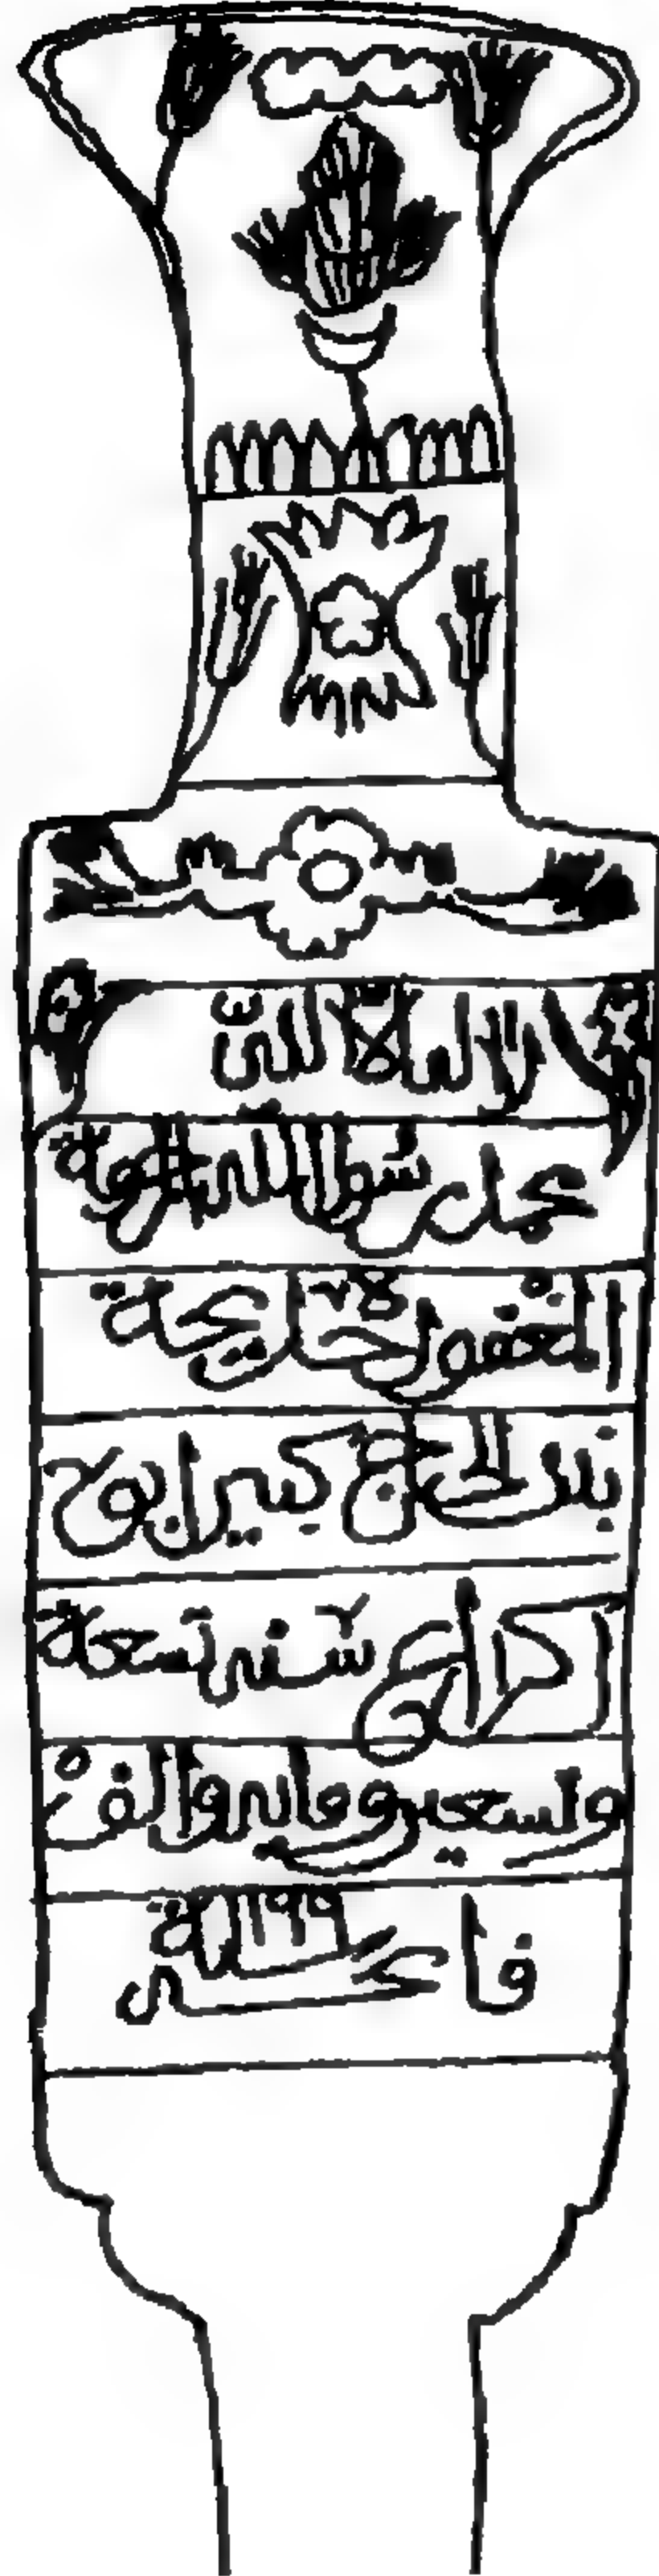 لا اله الا الله
محمد رسول الله المرحومة
المغفورة خديجة
بنت الحاج كبير
سنة تسعة
وتسعين ومائة والف
١١٩٩